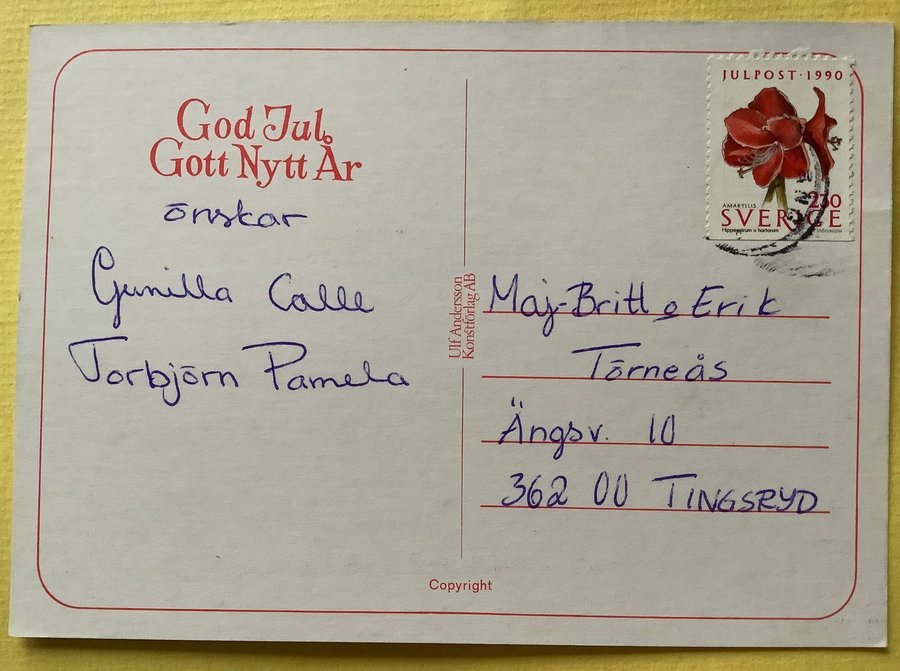 God Jul,
Gott Nytt År
önskar
Gunilla Calle
Torbjörn Pamela
Ulf Andersson
Konstförlag AB
JULPOST · 1990
AMARYLLIS
230
SVERIGE
Hippeastrum x hortorum
Maj-Britt o Erik
Törneås
Ängsv. 10
362 00 TINGSRYD
Copyright